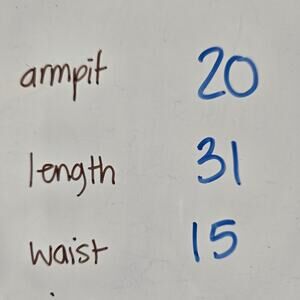 armpit 20
length 31
waist 15